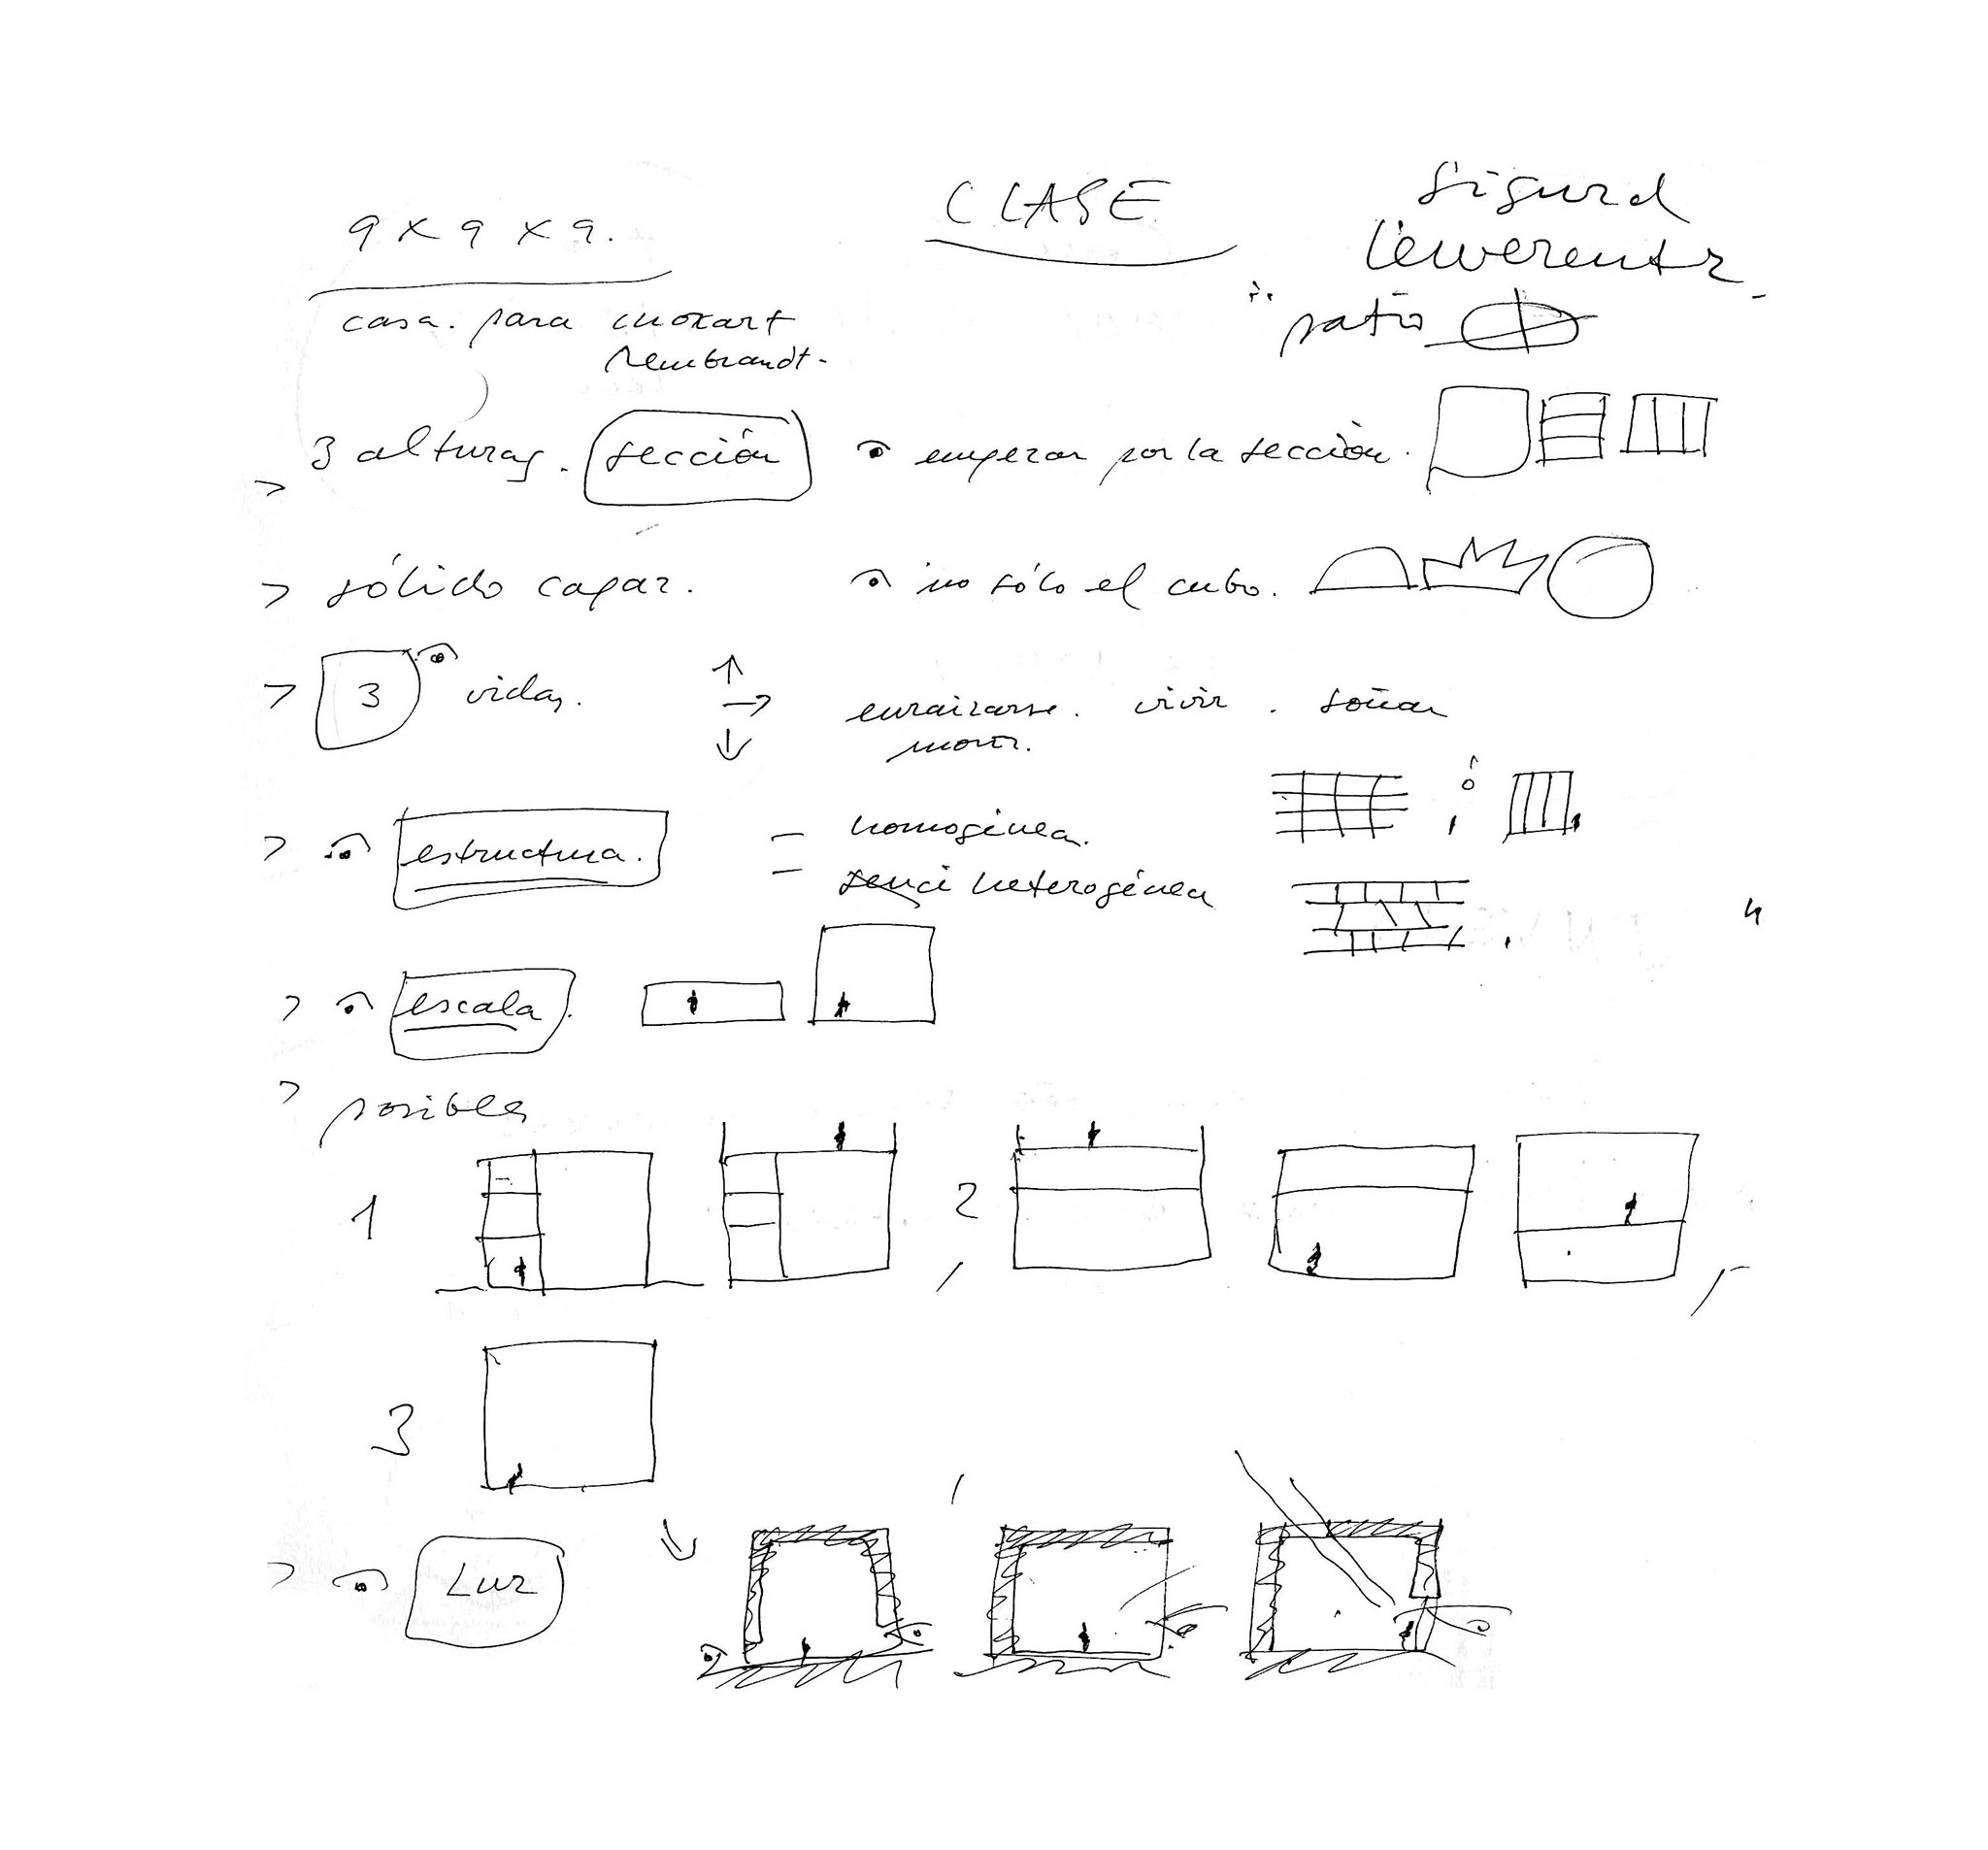 9 x 9 x 9.
CLASE
Sigurd
Lewerentz
casa. para mozart
rembrandt.
patio
3 alturas. sección
empezar por la sección.
> sólido capaz.
no sólo el cubo.
> 3 vidas.
enraizarse. vivir. soñar
morir.
> estructura.
- homogénea.
ó
- heterogénea
> escala.
> posibles
1
2
3
> Luz